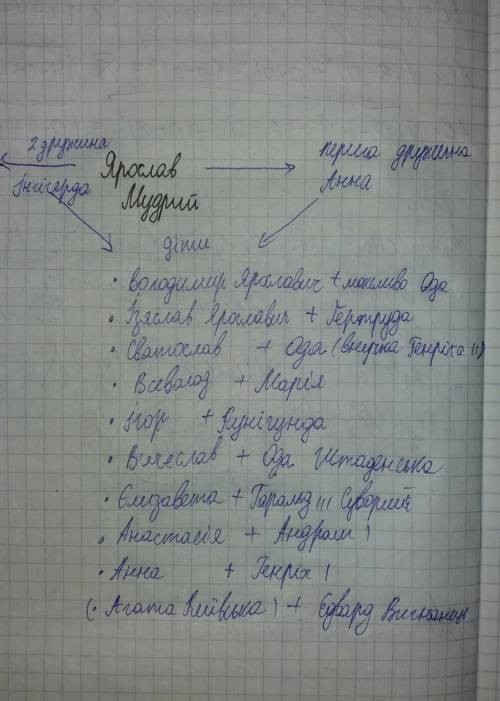 2 дружина
Ярослав Мудрий
перша дружина
Анна
Інгігерда
діти
· Володимир Яролавич + можливо Ода
· Ізяслав Ярославич + Гертруда
· Святослав + Ода (внучка Генріха III)
· Всеволод + Марія
· Ігор + Кунігунда
· Вячеслав + Ода Штаденська
· Єлизавета + Гаральд III Суворий
· Анастасія + Андраш I
· Анна + Генріх I
(· Агата Київська) + Едвард Вигнанець